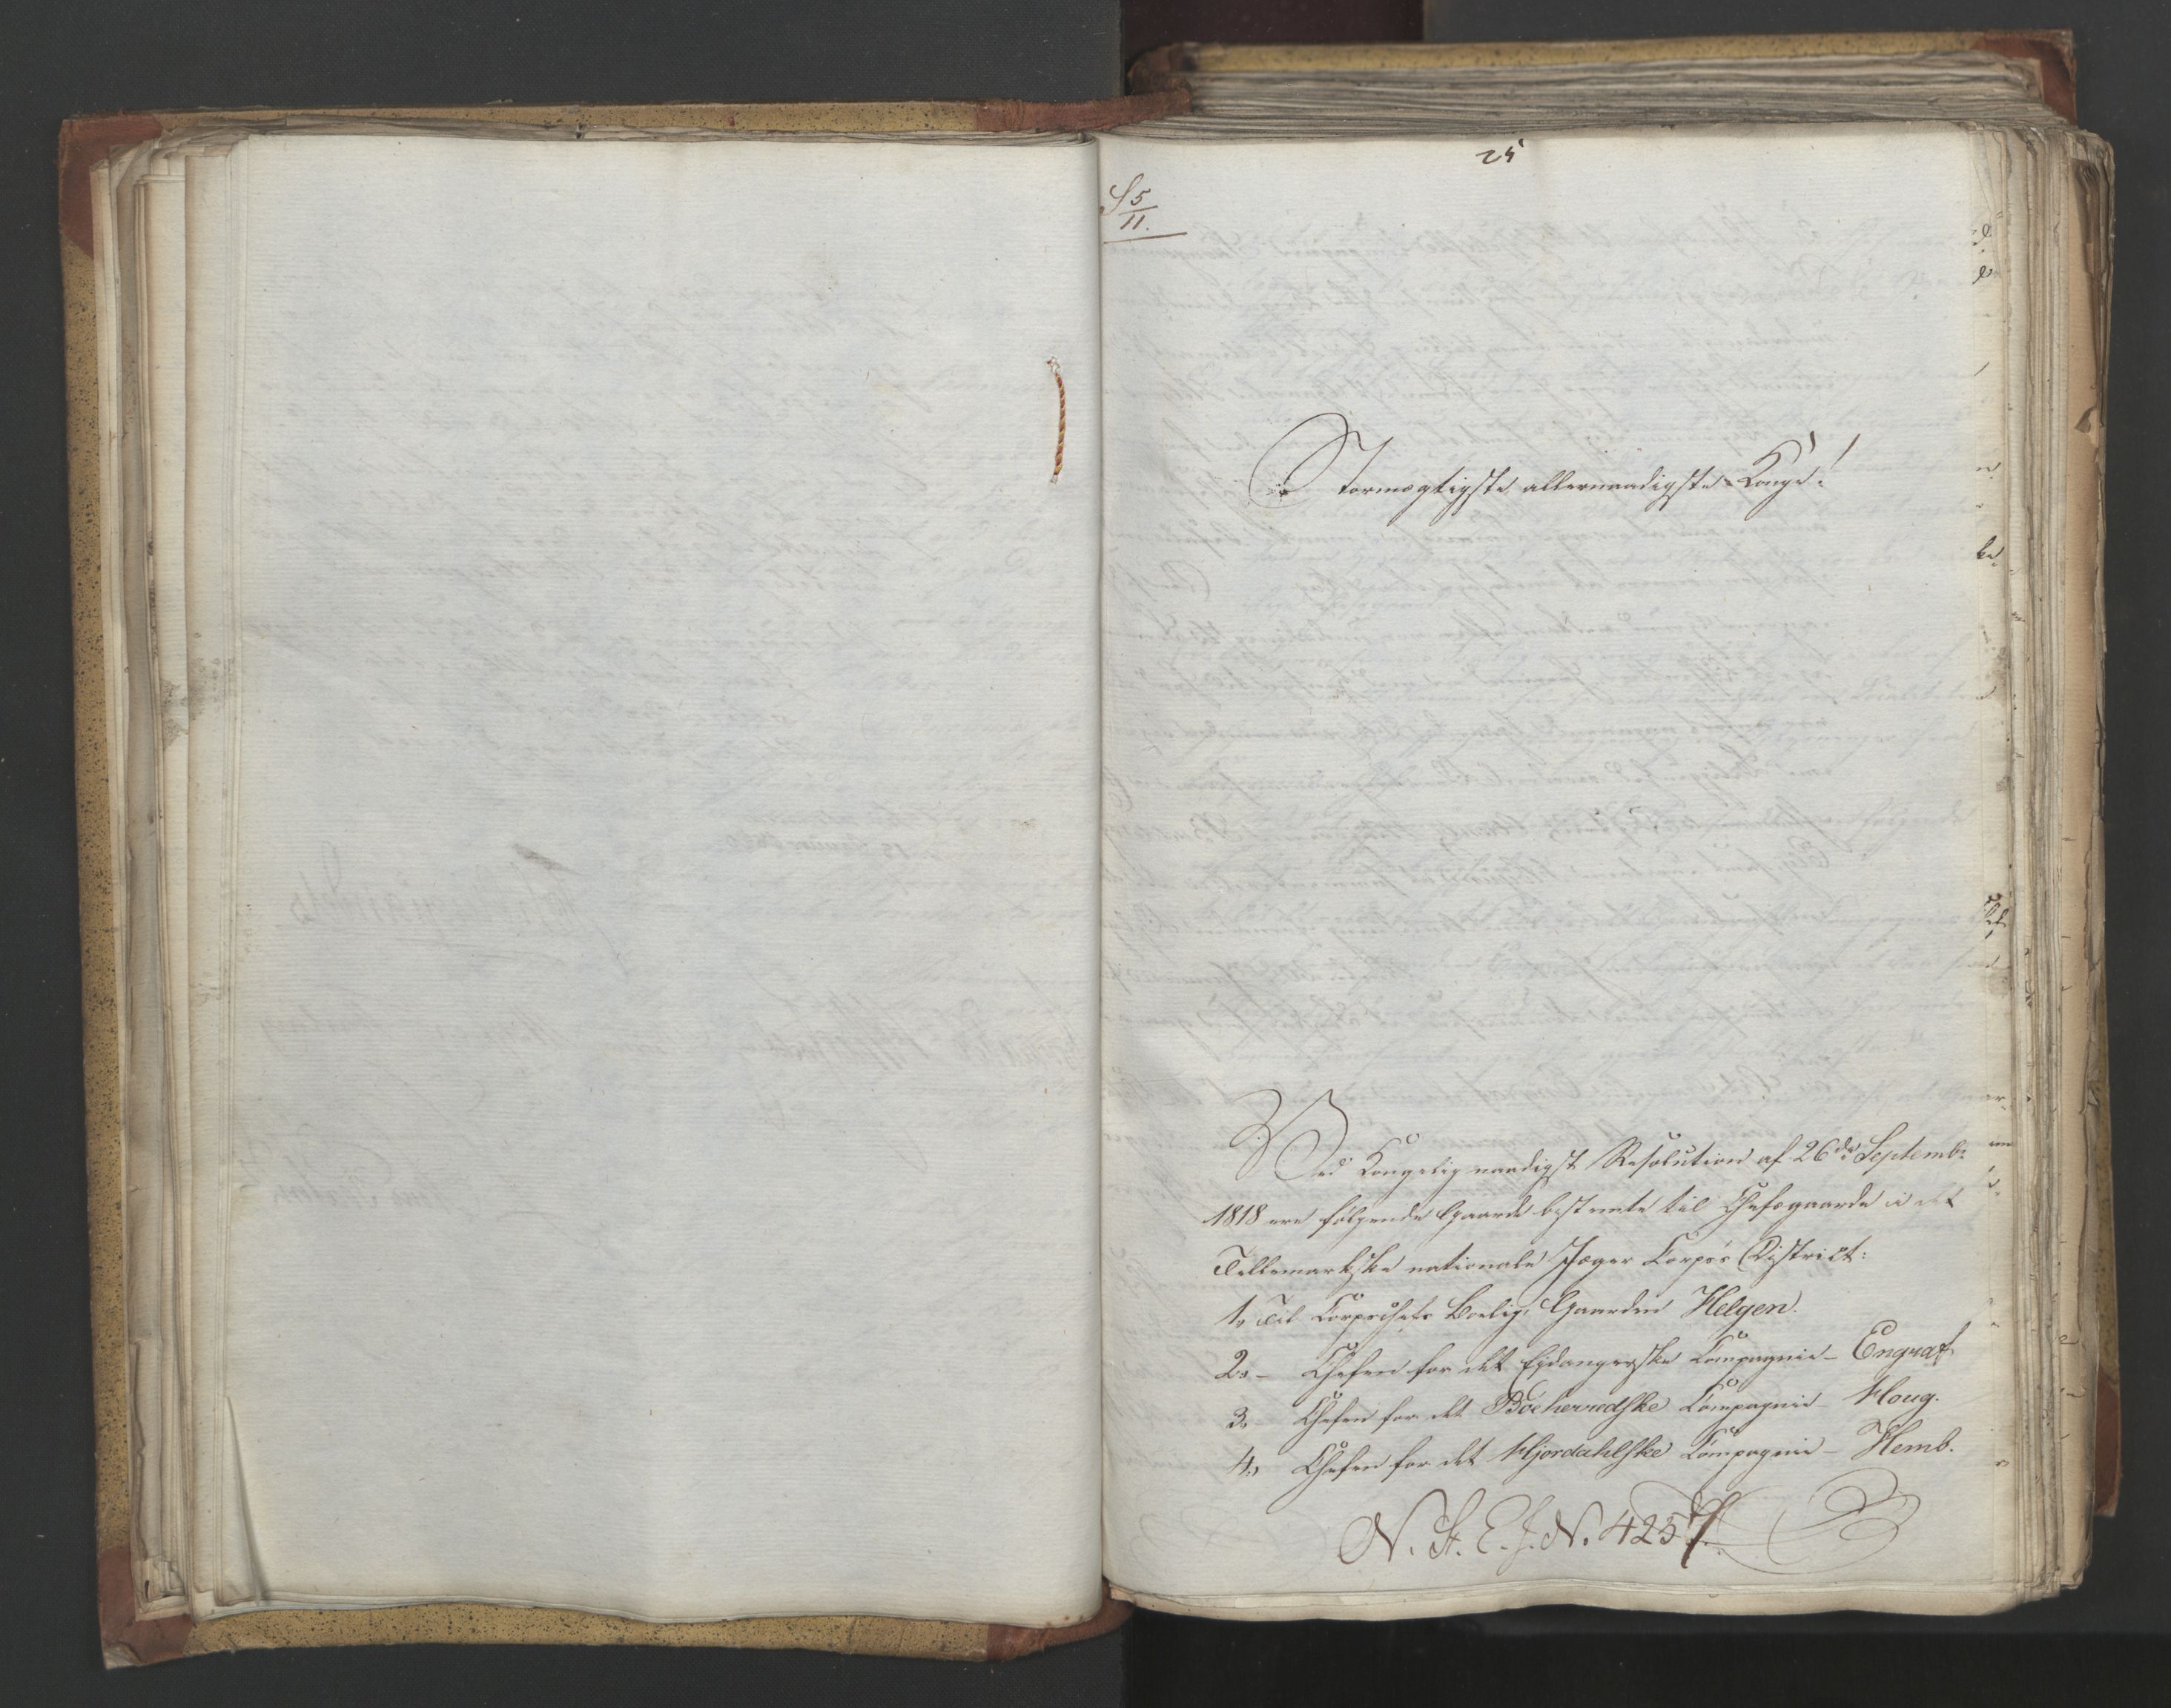 25
S 5
11.
Stormægtigste allernaadigste Konge!
Ved Kongelig naadigst Resolution af 26de Septembr
1818 ere følgende Gaarde bestemte til Chefsgaarde i det
Tellemarkske nationale Jæger Corps's District:
1, Til Corpschefs Bolig, Gaarden Helgen.
2, - Chefen for det Eidangerske Compagnie - Engraf
3, Chefen for det Böeherredske Compagnie - Houg.
4, Chefen for det Hjordahlske Compagnie - Hemb.
N. St. E. J. N. 4257.